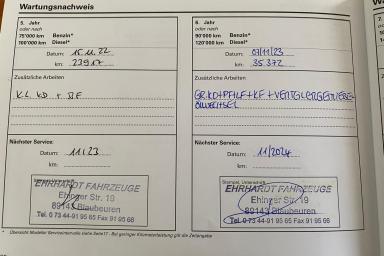 Wartungsnachweis
5. Jahr
oder nach
75'000 km Benzin*
100'000 km Diesel*
Datum: 15.11.22
km: 23917
Zusätzliche Arbeiten
KL. KD +
Nächster Service:
Datum: 11/23
km:
EHRHARDT FAHRZEUGE
Ehinger Str. 19
89143 Blaubeuren
Tel. 0 73 44-91 95 65 Fax 91 95 66
6. Jahr
oder nach
90'000 km Benzin*
120'000 km Diesel*
Datum: 07/11/23
km: 35.372
Zusätzliche Arbeiten
GR.KD+PFILF+KF+VERTEILERGETRIEBE
ÖLWECHSEL
Nächster Service:
Datum: 11/2024
km:
Stempel, Unterschrift
EHRHARDT FAHRZEUGE
Ehinger Str. 19
89143 Blaubeuren
Tel. 0 73 44-91 95 65 Fax 91 95 66
* Übersicht Modelle/ Serviceintervalle siehe Seite 17 - Bei geringer Kilometerleistung gilt die Zeitangabe